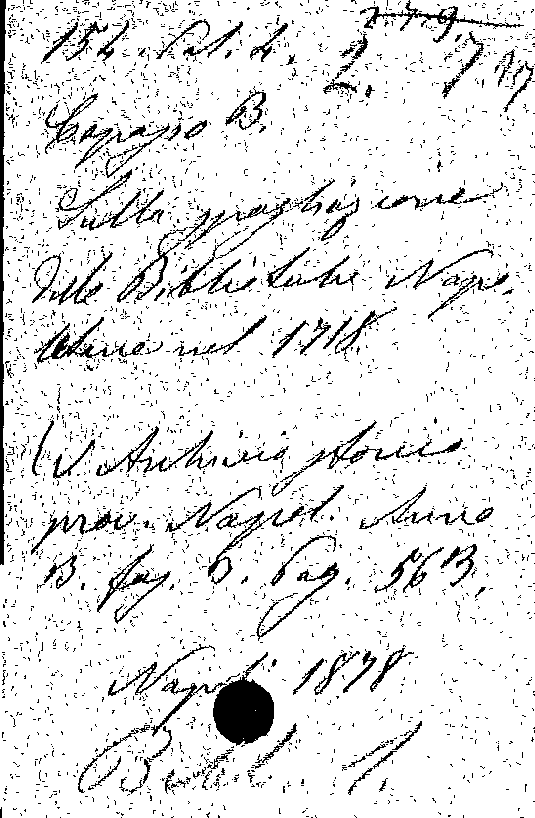 279.
152. Pal. L. 2. 7 17
Capasso B.
Sulla spogliazione
delle Biblioteche Napo-
letane nel 1718
(V Archivio storico
prov. Napol. Anno
3. fas. 3. Pag. 563.
Napoli 1878
Bibl. 1.